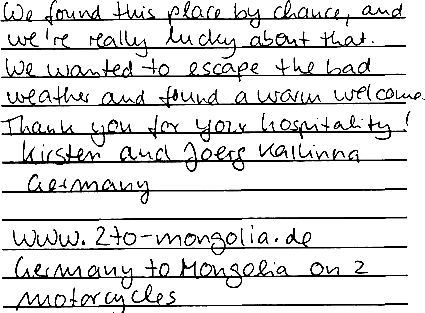 We found this place by chance, and
we're really lucky about that.
We wanted to escape the bad
weather and found a warm welcome.
Thank you for your hospitality!
Kirsten and Joerg Kallinna
Germany
www.2to-mongolia.de
Germany to Mongolia on 2
motorcycles